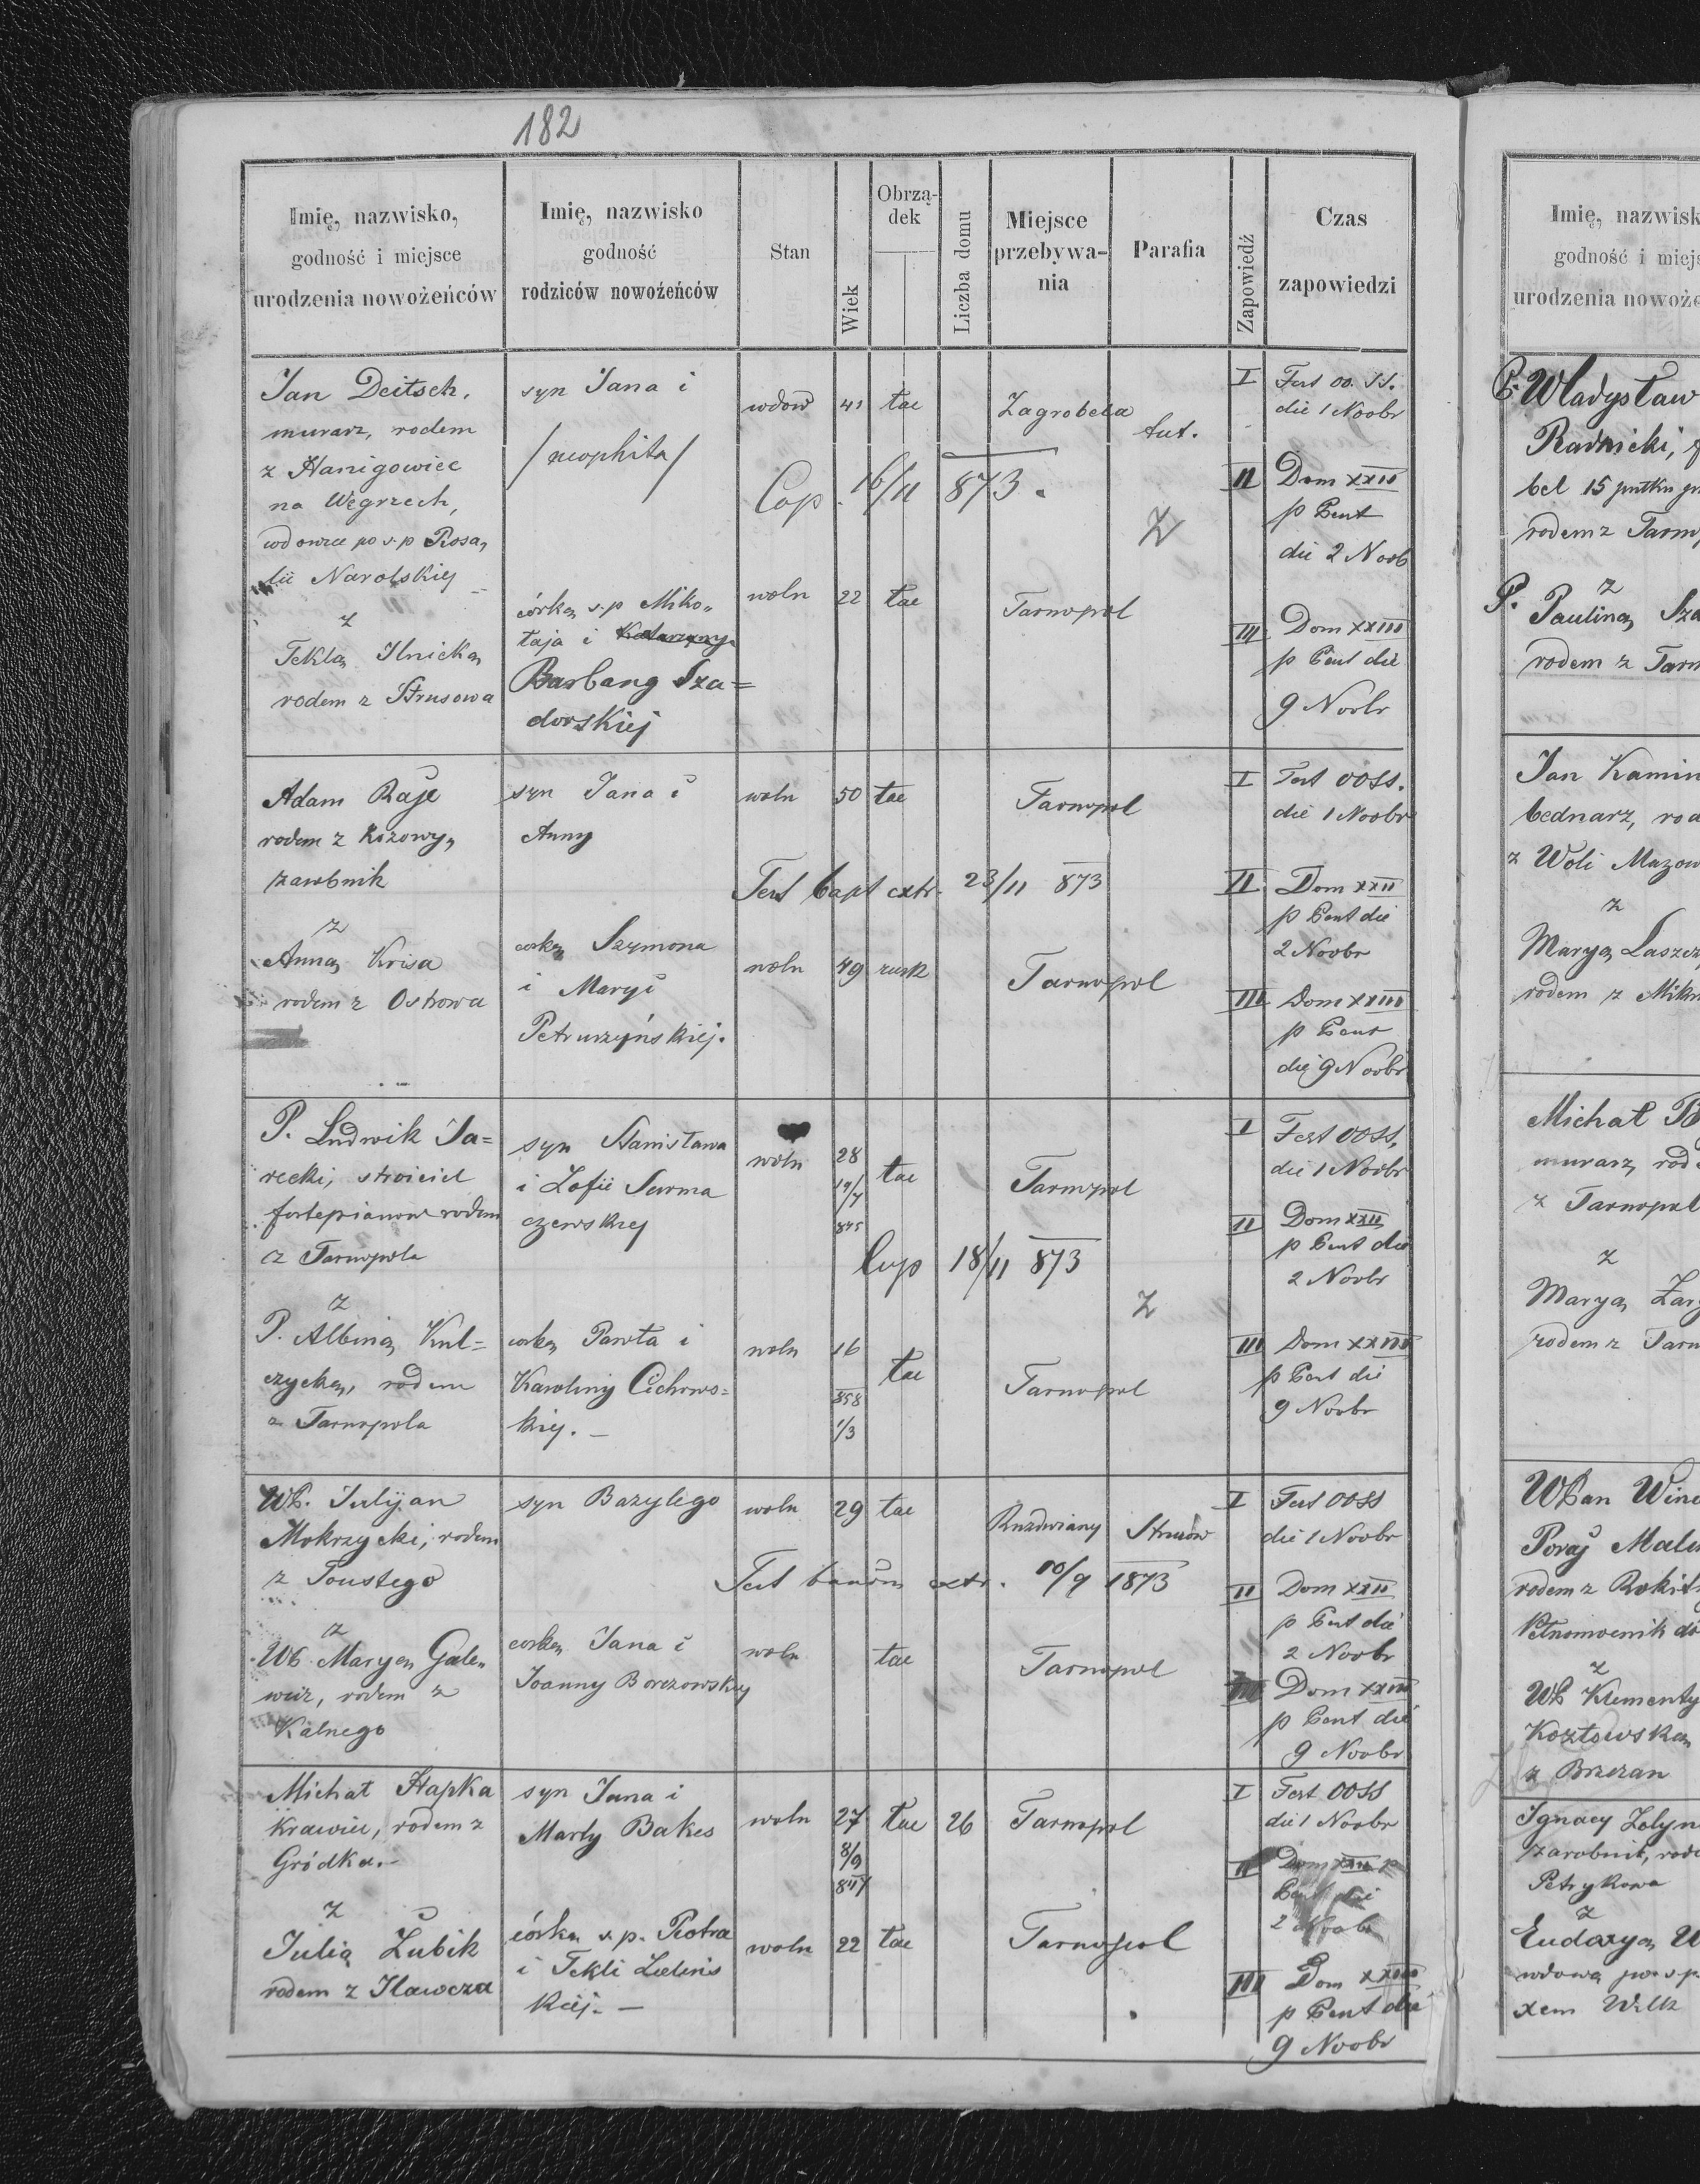 182
Imię, nazwisko,
godność i miejsce
urodzenia nowożeńców
Imię, nazwisko
godność
rodziców nowożeńców
Stan
Wiek
Obrzą-
dek
Liczba domu
Miejsce
przebywa-
nia
Parafia
Zapowiedź
Czas
zapowiedzi
Jan Deitsch,
murarz, rodem
z Hanigowiec
na Węgrzech,
wdowiec po s.p Rosa„
lii Narolskiej
z
Tekla Ilnicka
rodem z Strusowa
syn Jana i
/neophita/
córka s.p Miko„
łaja i Katarzyny
Barbary Sza=
dorskiej
wdow 41 łac Zagrobela tut.
Cop. 16/11 873.
Z
woln 22 łac Tarnopol
I Fest OO. SS.
die 1 Noobr
II Dom XXII
p Pent
die 2 Noob
III Dom XXIII
p Pent die
9 Noobr
Adam Raje
rodem z Kozowy„
zarobnik
z
Anna Krisa
rodem z Ostrowa
syn Jana i
Anny
córka Szymona
i Maryi
Petruszyńskiej.
woln 50 łac Tarnopol
Test bapt extr. 23/11 873
woln 49 rusk Tarnopol
I Fest OOSS.
die 1 Noobr
II Dom XXII
p Pent die
2 Noobr
III Dom XXIII
p Pent
die 9 Noobr
P. Ludwik Ja=
recki, stroiciel
fortepianow rodem
z Tarnopola
z
P. Albina Kul=
czycka, rodem
z Tarnopola
syn Stanisława
i Zofii Surma
czewskiej
córka Pawła i
Karoliny Cichows=
kiej. –
woln 28 łac Tarnopol
19/7
845
Cop 18/11 873
Z
woln 16 łac Tarnopol
858
1/3
I Fest OOSS,
die 1 Noobr
II Dom XXII
p Pent die
2 Noobr
III Dom XXIII
p Pent die
9 Noobr
WP. Julijan
Mokrzycki, rodem
z Toustego
z
WP. Marya Gale„
wicz, rodem z
Kalnego
syn Bazylego
córka Jana i
Joanny Borczowskiej
woln 29 łac Ruzdwiany Strusów
Test bannōm extr. 10/9 1873
woln łac Tarnopol
I Fest OOSS
die 1 Noobr
II Dom XXII
p Pent die
2 Noobr
III Dom XXIII
p Pent die
9 Noobr
Michał Hapka
Krawiec, rodem z
Gródka.–
z
Julia Zubik
rodem z Iławcza
syn Jana i
Marty Bakes
córka s.p. Piotra
i Tekli Zielińs
kiej. –
woln 27 łac 26 Tarnopol
8/9
847
woln 22 łac Tarnopol
I Fest OOSS
die 1 Noobr
II Dom XXII p
Pent die
2 Noobr
III Dom XXIII
p Pent die
9 Noobr
Imię, nazwisk
godność i miejs
urodzenia nowoże
P. Władysław
Radnicki, f
bel 15 pułku
rodem z Tarnop
z
P. Paulina Sza
rodem z Tarn
Jan Kamin
bednarz, rod
z Woli Mazow
z
Marya Laszcz
rodem z Miku
Michał B
murarz, rod
z Tarnopol
z
Marya Zarz
rodem z Tarn
WPan Winc
Poraj Mali
rodem z Rokit
Pełnomocnik do
z
WP Klementy
Kozłowska
z Brzeżan
Ignacy Zelyn
zarobnik, rode
Petrykowa
z
Eudozya W
wdowa po s.p.
xem Wilk